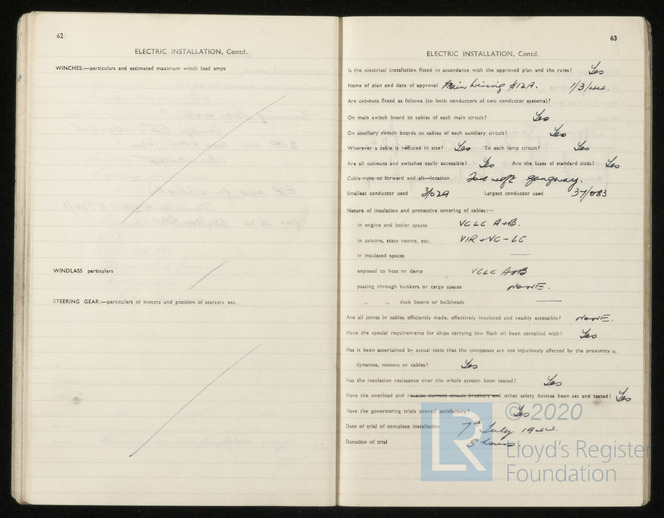 62
ELECTRIC INSTALLATION, Contd.
WINCHES:—particulars and estimated maximum winch load amps
WINDLASS particulars
STEERING GEAR:—particulars of motors and position of starters etc.
63
ELECTRIC INSTALLATION, Contd.
Is the electrical installation fitted in accordance with the approved plan and the rules? Yes
Name of plan and date of approval Main Wiring #12A. 1/3/44.
Are cut-outs fitted as follows (to both conductors of two conductor systems)?
On main switch board to cables of each main circuit? Yes
On auxiliary switch boards to cables of each auxiliary circuit? Yes
Wherever a cable is reduced in size? Yes To each lamp circuit? Yes
Are all cut-outs and switches easily accessible? Yes Are the fuses of standard sizes? Yes
Cable runs to forward and aft—location gangway.
Smallest conductor used 3/029 Largest conductor used 37/083
Nature of insulation and protective covering of cables:—
in engine and boiler spaces VCLC A+B.
in saloons, state rooms, etc. VIR & VC-LC
in insulated spaces —
exposed to heat or damp VCLC A+B
passing through bunkers or cargo spaces NONE.
„ „ deck beams or bulkheads —
Are all joints in cables efficiently made, effectively insulated and readily accessible? NONE.
Have the special requirements for ships carrying low flash oil been complied with? Yes
Has it been ascertained by actual tests that the compasses are not injuriously affected by the proximity of
dynamos, motors or cables? Yes
Has the insulation resistance over the whole system been tested? Yes
Have the overload and reverse current circuit breakers and other safety devices been set and tested? Yes
Have the governing trials proved satisfactory? Yes
Date of trial of complete installation 7th July 1944.
Duration of trial 8 hours
© 2020
LR
Lloyd's Register
Foundation